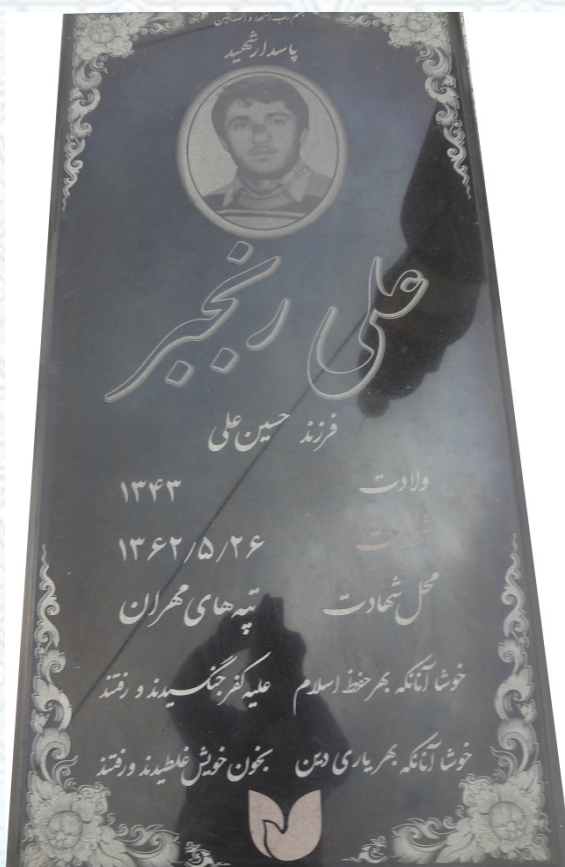 بسم رب الشهدا و الصدیقین
پاسدار شهید
علی رنجبر
فرزند حسین علی
ولادت ۱۳۴۳
شهادت ۱۳۶۲/۵/۲۶
محل شهادت تپه های مهران
خوشا آنانکه بهر حفظ اسلام علیه کفر جنگیدند و رفتند
خوشا آنانکه بهر یاری دین بخون خویش غلطیدند و رفتند